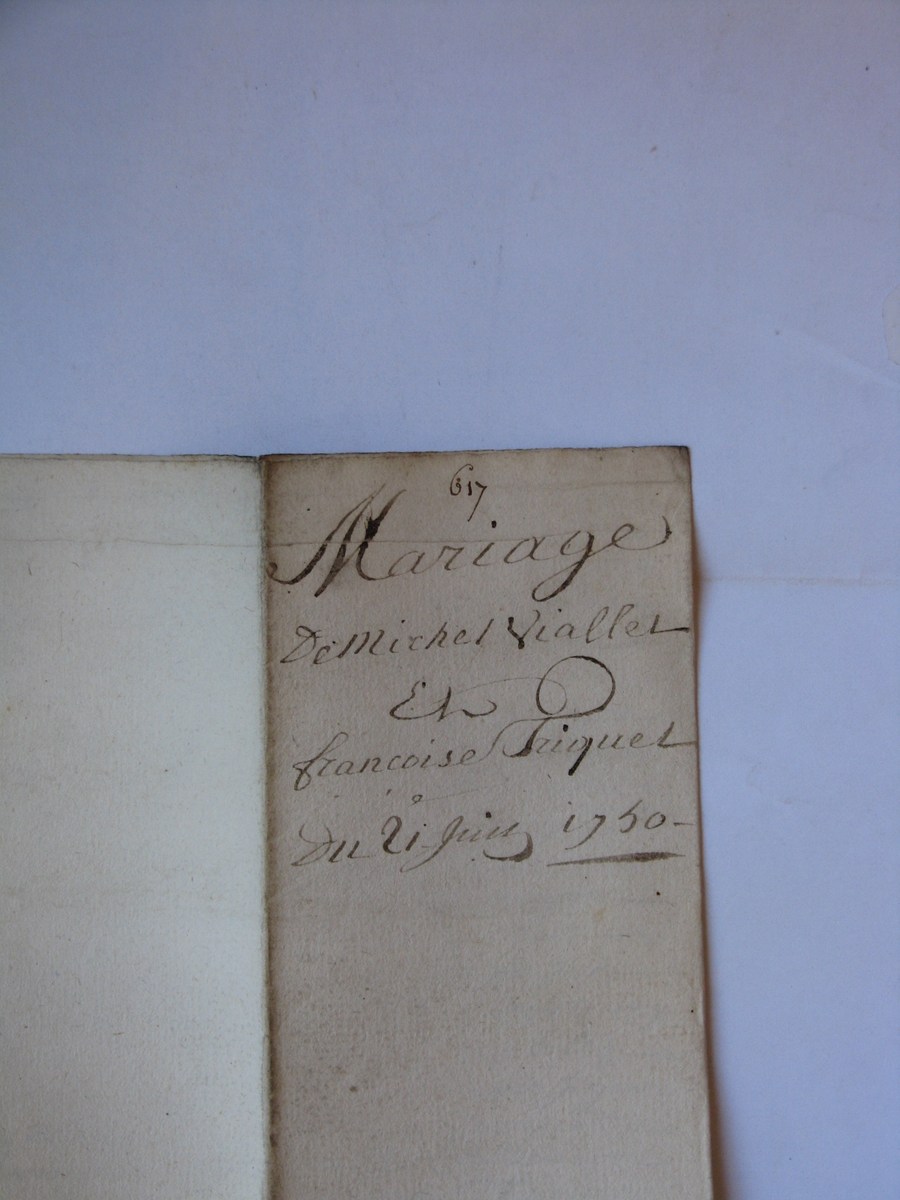 617
Mariage
De Michel Viallet
Et
francoise Triquet
Du 21 Juin 1750